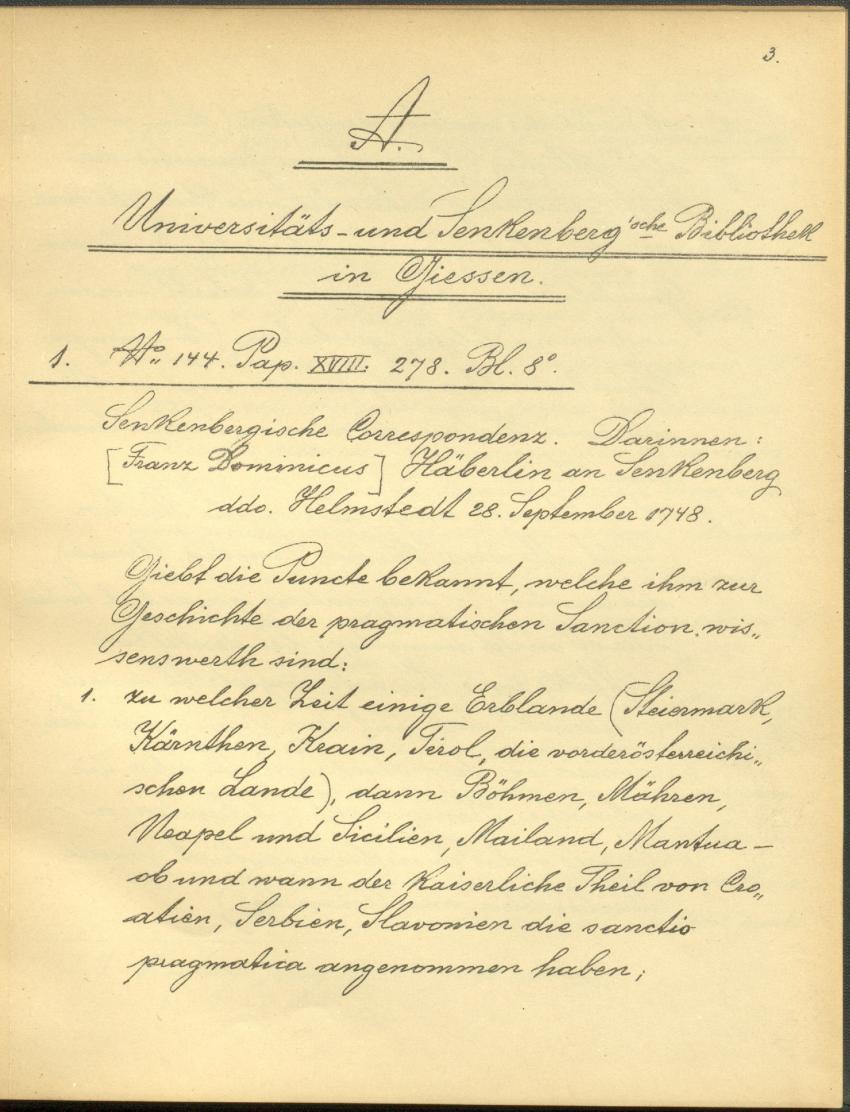 3.
A.
Universitäts- und Senkenberg'sche Bibliothek
in Giessen.
1. No. 144. Pap. XVIII. 278. Bl. 8°.
Senkenbergische Correspondenz. Darinnen:
[Franz Dominicus] Häberlin an Senkenberg
ddo. Helmstedt 28. September 1748.
Giebt die Puncte bekannt, welche ihm zur
Geschichte der pragmatischen Sanction wis„
senswerth sind:
1. zu welcher Zeit einige Erblande (Steiermark,
Kärnthen, Krain, Tirol, die vorderösterreichi„
schen Lande), dann Böhmen, Mähren,
Neapel und Sicilien, Mailand, Mantua –
ob und wann der Kaiserliche Theil von Cro„
atien, Serbien, Slavonien die sanctio
pragmatica angenommen haben;